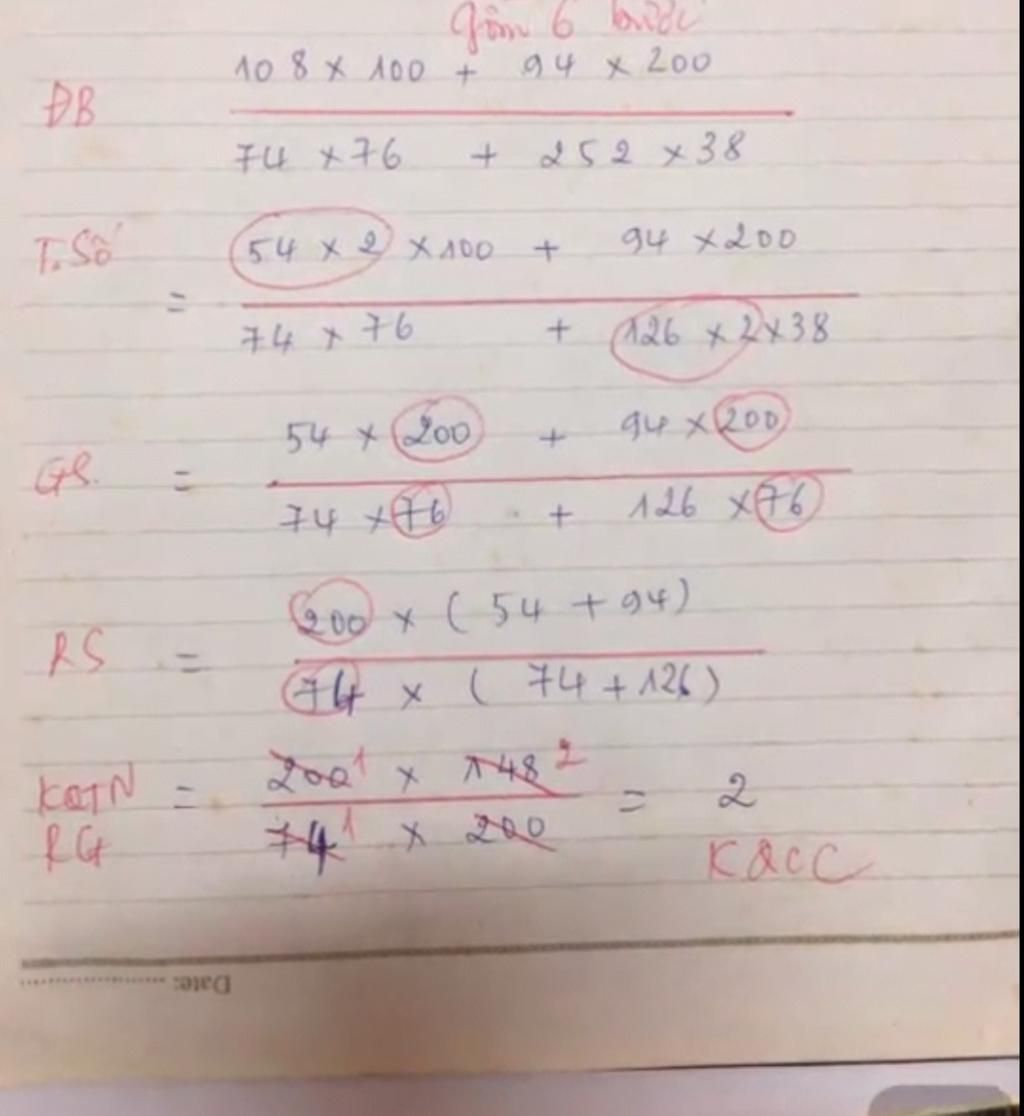 gồm 6 bước
108 × 100 + 94 × 200
ĐB
74 × 76 + 252 × 38
T.Số 54 × 2 × 100 + 94 × 200
=
74 × 76 + 126 × 2 × 38
54 × 200 + 94 × 200
GS. =
74 × 76 + 126 × 76
200 × ( 54 + 94)
RS =
74 × ( 74 + 126)
KQTN = 200 1 × 148 2 = 2
RG 74 1 × 200
KQCC
Date: